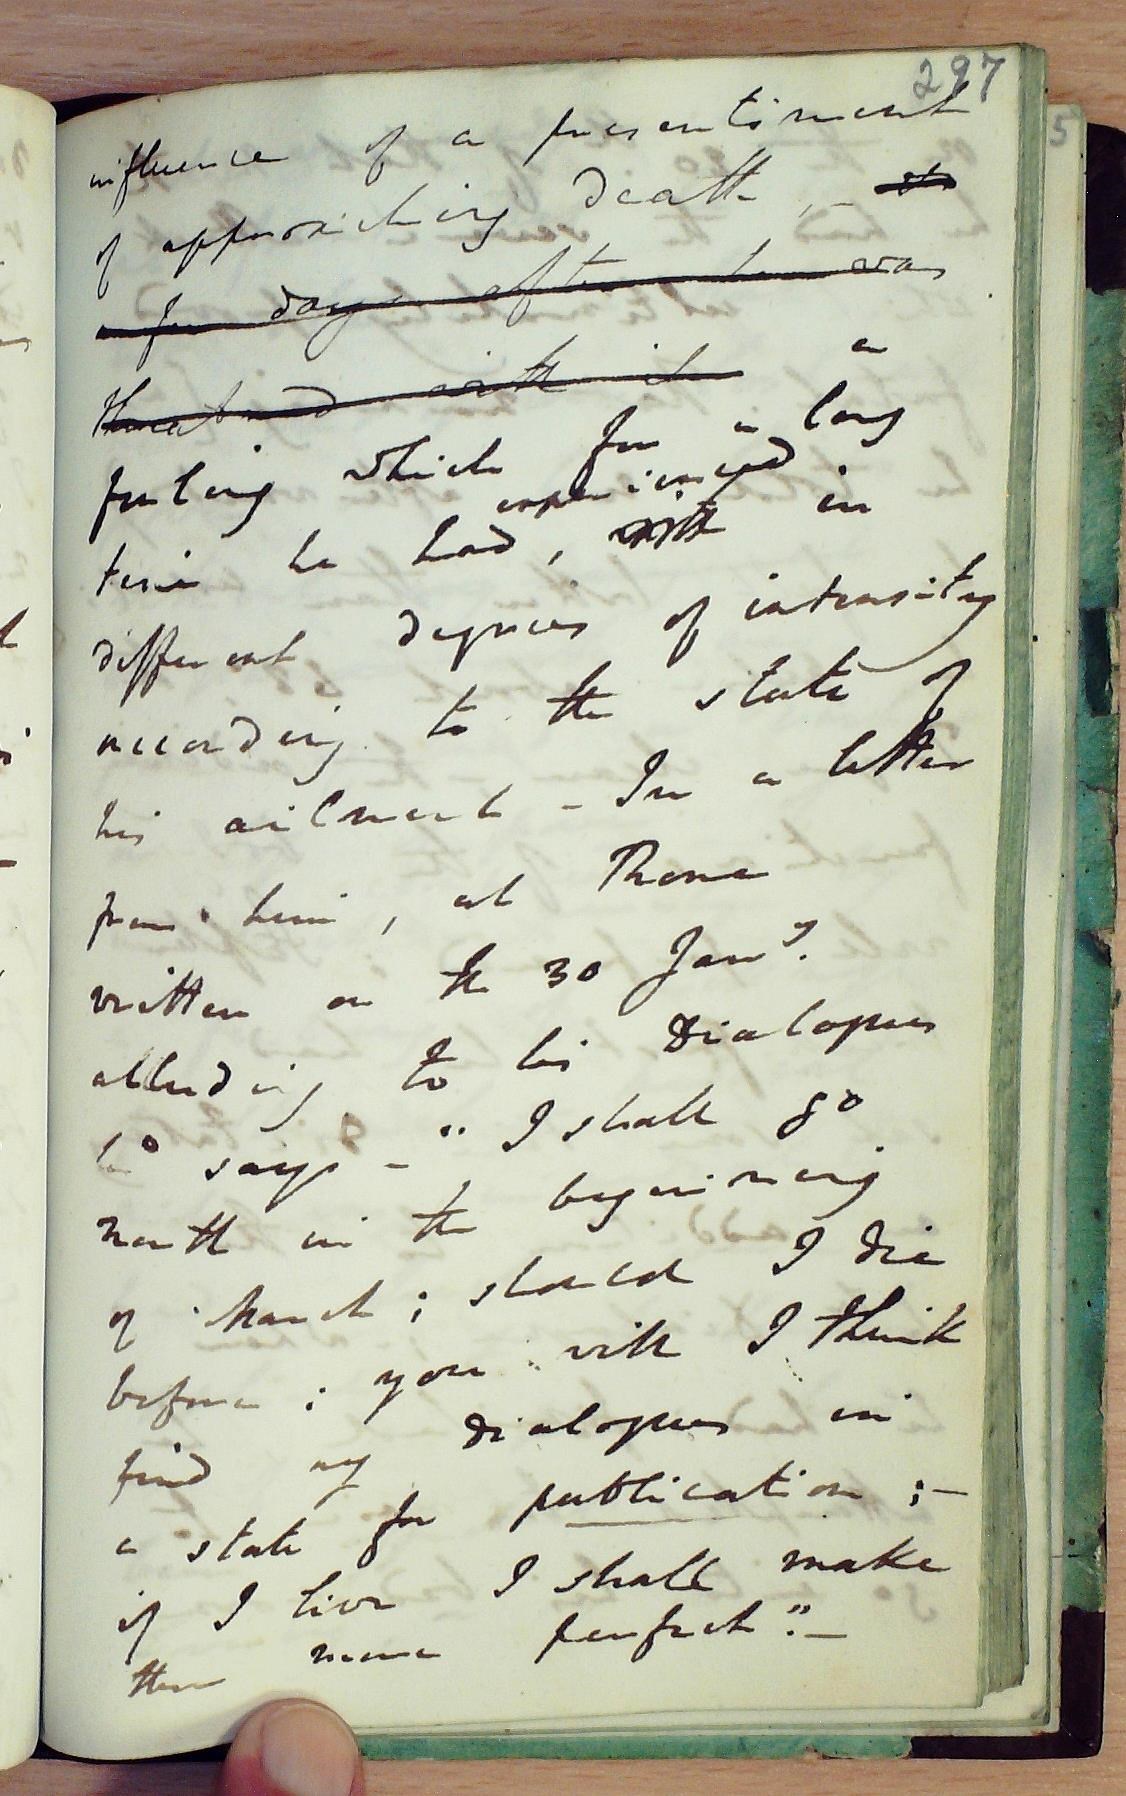 297
influence of a presentiment
of approaching death, -
a few days after he was
threatened with it a
feeling which for a long
experienced
time he had, with in
different degrees of intensity
according to the state of
his ailment - In a letter
from him, at Rome
written on the 30 Jany.
alluding to his Dialogues
he says - "I shall go
north in the beginning
of March; should I die
before; you will I think
find my dialogues in
a state for publication;-
if I live I shall make
them more perfect".-